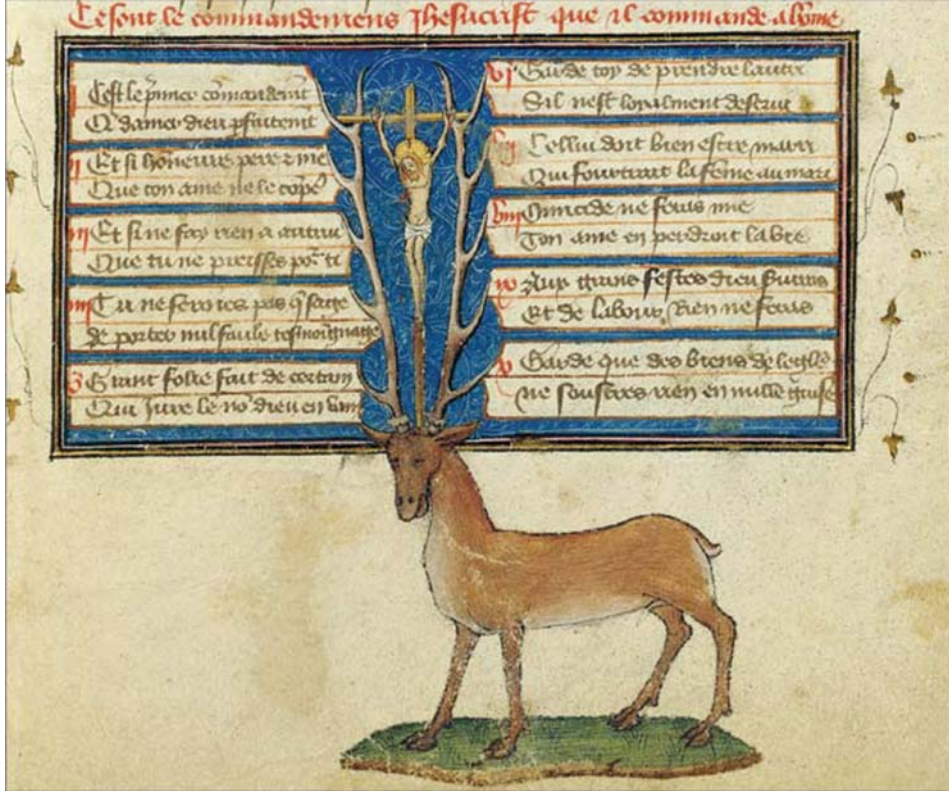 Ce sont le commandemens Jhesucrist que il commande a lo͂me
j Cest le p͂mier co͂mandem͂t
Q͂ damer dieu p͂faitem͂t
ij Et si honneure pere & me͂
Que ton ame ne le co͂pe͂
iij Et si ne fay rien a autrui
Que tu ne preisses po͂ ti
iiij Tu ne feroies pas q͂ sage
de porter nul faulx tesmoignage
5 Grant folie fait de certain
Qui Jure le no͂ dieu en vain
vj Garde toy de prendre lautrui
Sil nest loyalment deservi
vij Cellui doit bien estre marri
Qui fourtrait la feme au mari
viij Omicide ne feras mie
Ton ame en perdroit la vie
ix Aux grans festes dieu
Et de labour Rien ne feras
x Garde que des biens de leglise
ne soustres rien en nulle guise